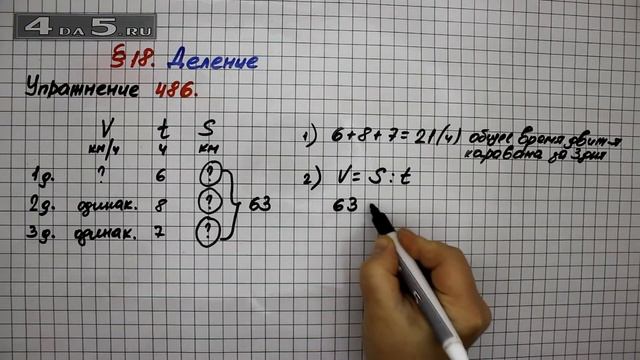 4DA5.RU
§18. Деление
Упражнение 486.
V t S
км/ч ч км
1д. ? 6 ?
2д. одинак. 8 ? 63
3д. одинак. 7 ?
1) 6+8+7=21(ч) общее время движ-я
каравана за 3 дня
2) V = S : t
63